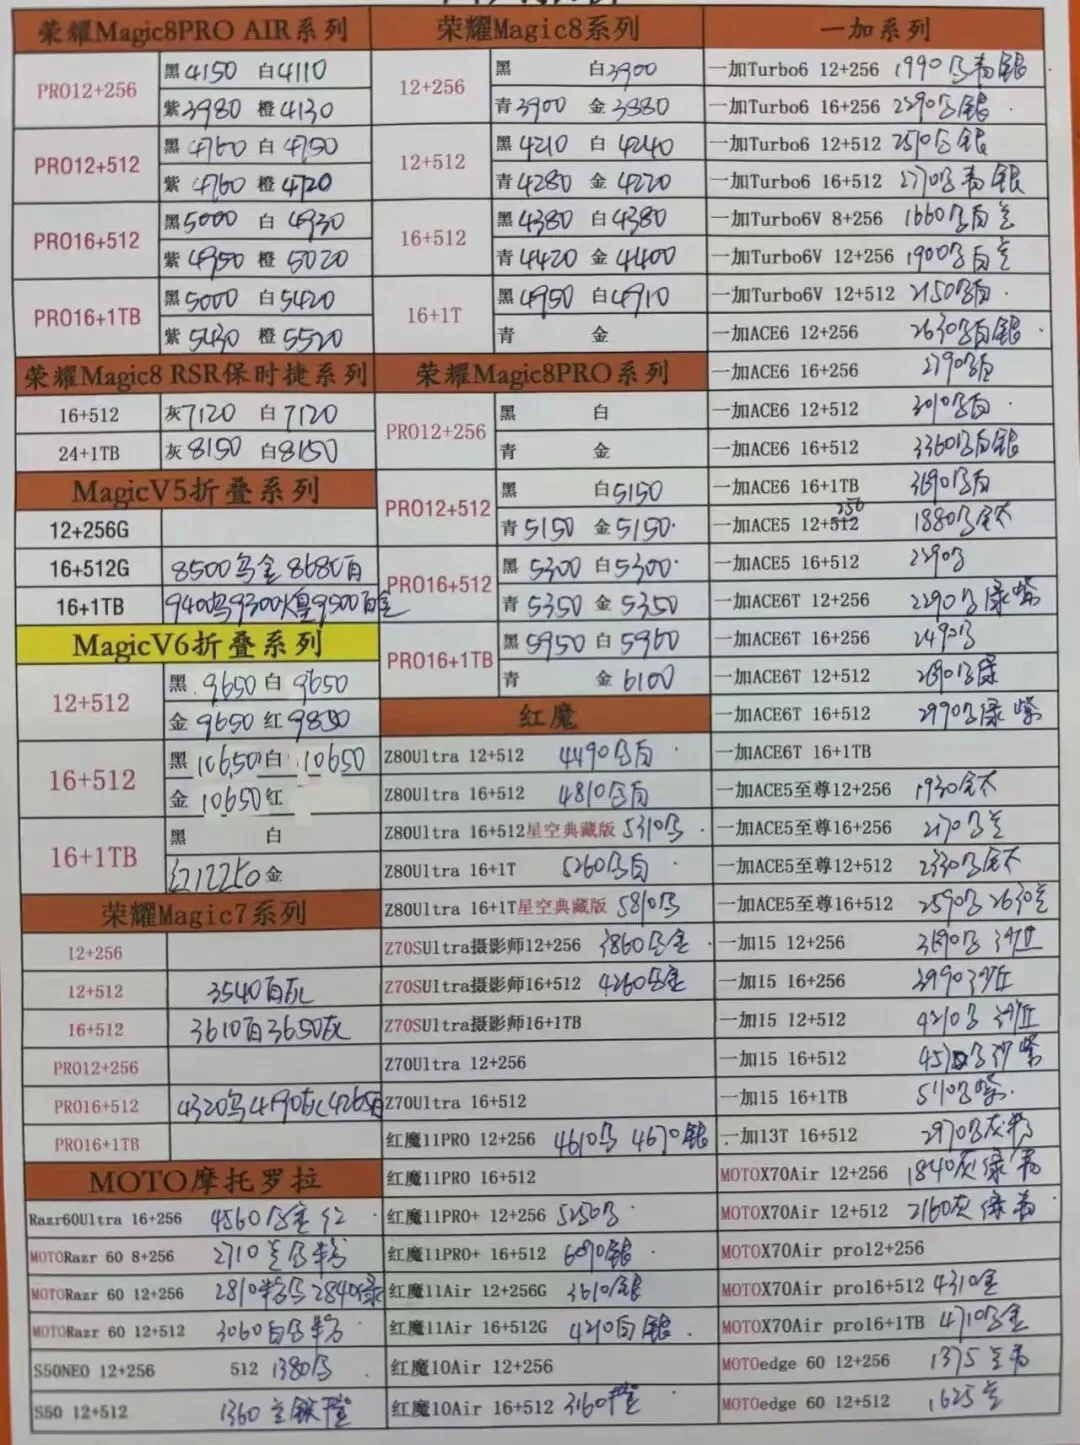 荣耀Magic8PRO AIR系列
PRO12+256
黑4150 白4110
紫3980 橙4130
PRO12+512
黑4760 白4750
紫4760 橙4720
PRO16+512
黑5000 白4930
紫4950 橙5020
PRO16+1TB
黑5000 白5420
紫5430 橙5520
荣耀Magic8 RSR保时捷系列
16+512 灰7120 白7120
24+1TB 灰8150 白8150
MagicV5折叠系列
12+256G
16+512G 8500乌金 8680白
16+1TB 9400乌9300 9500白金
MagicV6折叠系列
12+512
黑9650 白9650
金9650 红9850
16+512
黑10650 白10650
金10650 红
16+1TB
黑 白
红12250 金
荣耀Magic7系列
12+256
12+512 3540白灰
16+512 3610白3650灰
PRO12+256
PRO16+512 4320乌4190灰4265白
PRO16+1TB
MOTO摩托罗拉
Razr60Ultra 16+256 4560乌金 红
MOTORazr 60 8+256 2710兰乌粉
MOTORazr 60 12+256 2810粉乌2840绿
MOTORazr 60 12+512 3060白乌粉
S50NEO 12+256 512 1380乌
S50 12+512 1360兰 橙
荣耀Magic8系列
12+256
黑 白3900
青3900 金3880
12+512
黑4210 白4240
青4280 金4220
16+512
黑4380 白4380
青4420 金4400
16+1T
黑4950 白4910
青 金
荣耀Magic8PRO系列
PRO12+256
黑 白
青 金
PRO12+512
黑 白5150
青5150 金5150
PRO16+512
黑5300 白5300
青5350 金5350
PRO16+1TB
黑5950 白5960
青 金6100
红魔
Z80Ultra 12+512 4490乌白
Z80Ultra 16+512 4810乌白
Z80Ultra 16+512星空典藏版 5310乌
Z80Ultra 16+1T 5260乌白
Z80Ultra 16+1T星空典藏版 5810乌
Z70SUltra摄影师12+256 3860乌金
Z70SUltra摄影师16+512 4260乌金
Z70SUltra摄影师16+1TB
Z70Ultra 12+256
Z70Ultra 16+512
红魔11PRO 12+256 4610乌 4670银
红魔11PRO 16+512
红魔11PRO+ 12+256 5250乌
红魔11PRO+ 16+512 6090银
红魔11Air 12+256G 3610银
红魔11Air 16+512G 4210白银
红魔10Air 12+256
红魔10Air 16+512 3160橙
一加系列
一加Turbo6 12+256 1990乌青银
一加Turbo6 16+256 2290乌银
一加Turbo6 12+512 2510乌银
一加Turbo6 16+512 2770乌青银
一加Turbo6V 8+256 1660乌白兰
一加Turbo6V 12+256 1900乌白兰
一加Turbo6V 12+512 2150乌白
一加ACE6 12+256 2630乌白银
一加ACE6 16+256 2790白
一加ACE6 12+512 3010乌白
一加ACE6 16+512 3360乌白银
一加ACE6 16+1TB 3690乌白
一加ACE5 12+256 1880乌钛
一加ACE5 16+512 2290乌
一加ACE6T 12+256 2290乌绿紫
一加ACE6T 16+256 2490乌
一加ACE6T 12+512 2690乌绿
一加ACE6T 16+512 2990乌绿紫
一加ACE6T 16+1TB
一加ACE5至尊12+256 1930钛
一加ACE5至尊16+256 2170乌兰
一加ACE5至尊12+512 2330乌钛
一加ACE5至尊16+512 2590乌 2630兰
一加15 12+256 3690乌 沙丘
一加15 16+256 3990沙丘
一加15 12+512 4210乌 沙丘
一加15 16+512 乌沙 紫
一加15 16+1TB 5110乌紫
一加13T 16+512 2970乌灰粉
MOTOX70Air 12+256 1840灰绿青
MOTOX70Air 12+512 2160灰绿青
MOTOX70Air pro12+256
MOTOX70Air pro16+512 4310金
MOTOX70Air pro16+1TB 4710乌金
MOTOedge 60 12+256 1375兰青
MOTOedge 60 12+512 1625兰